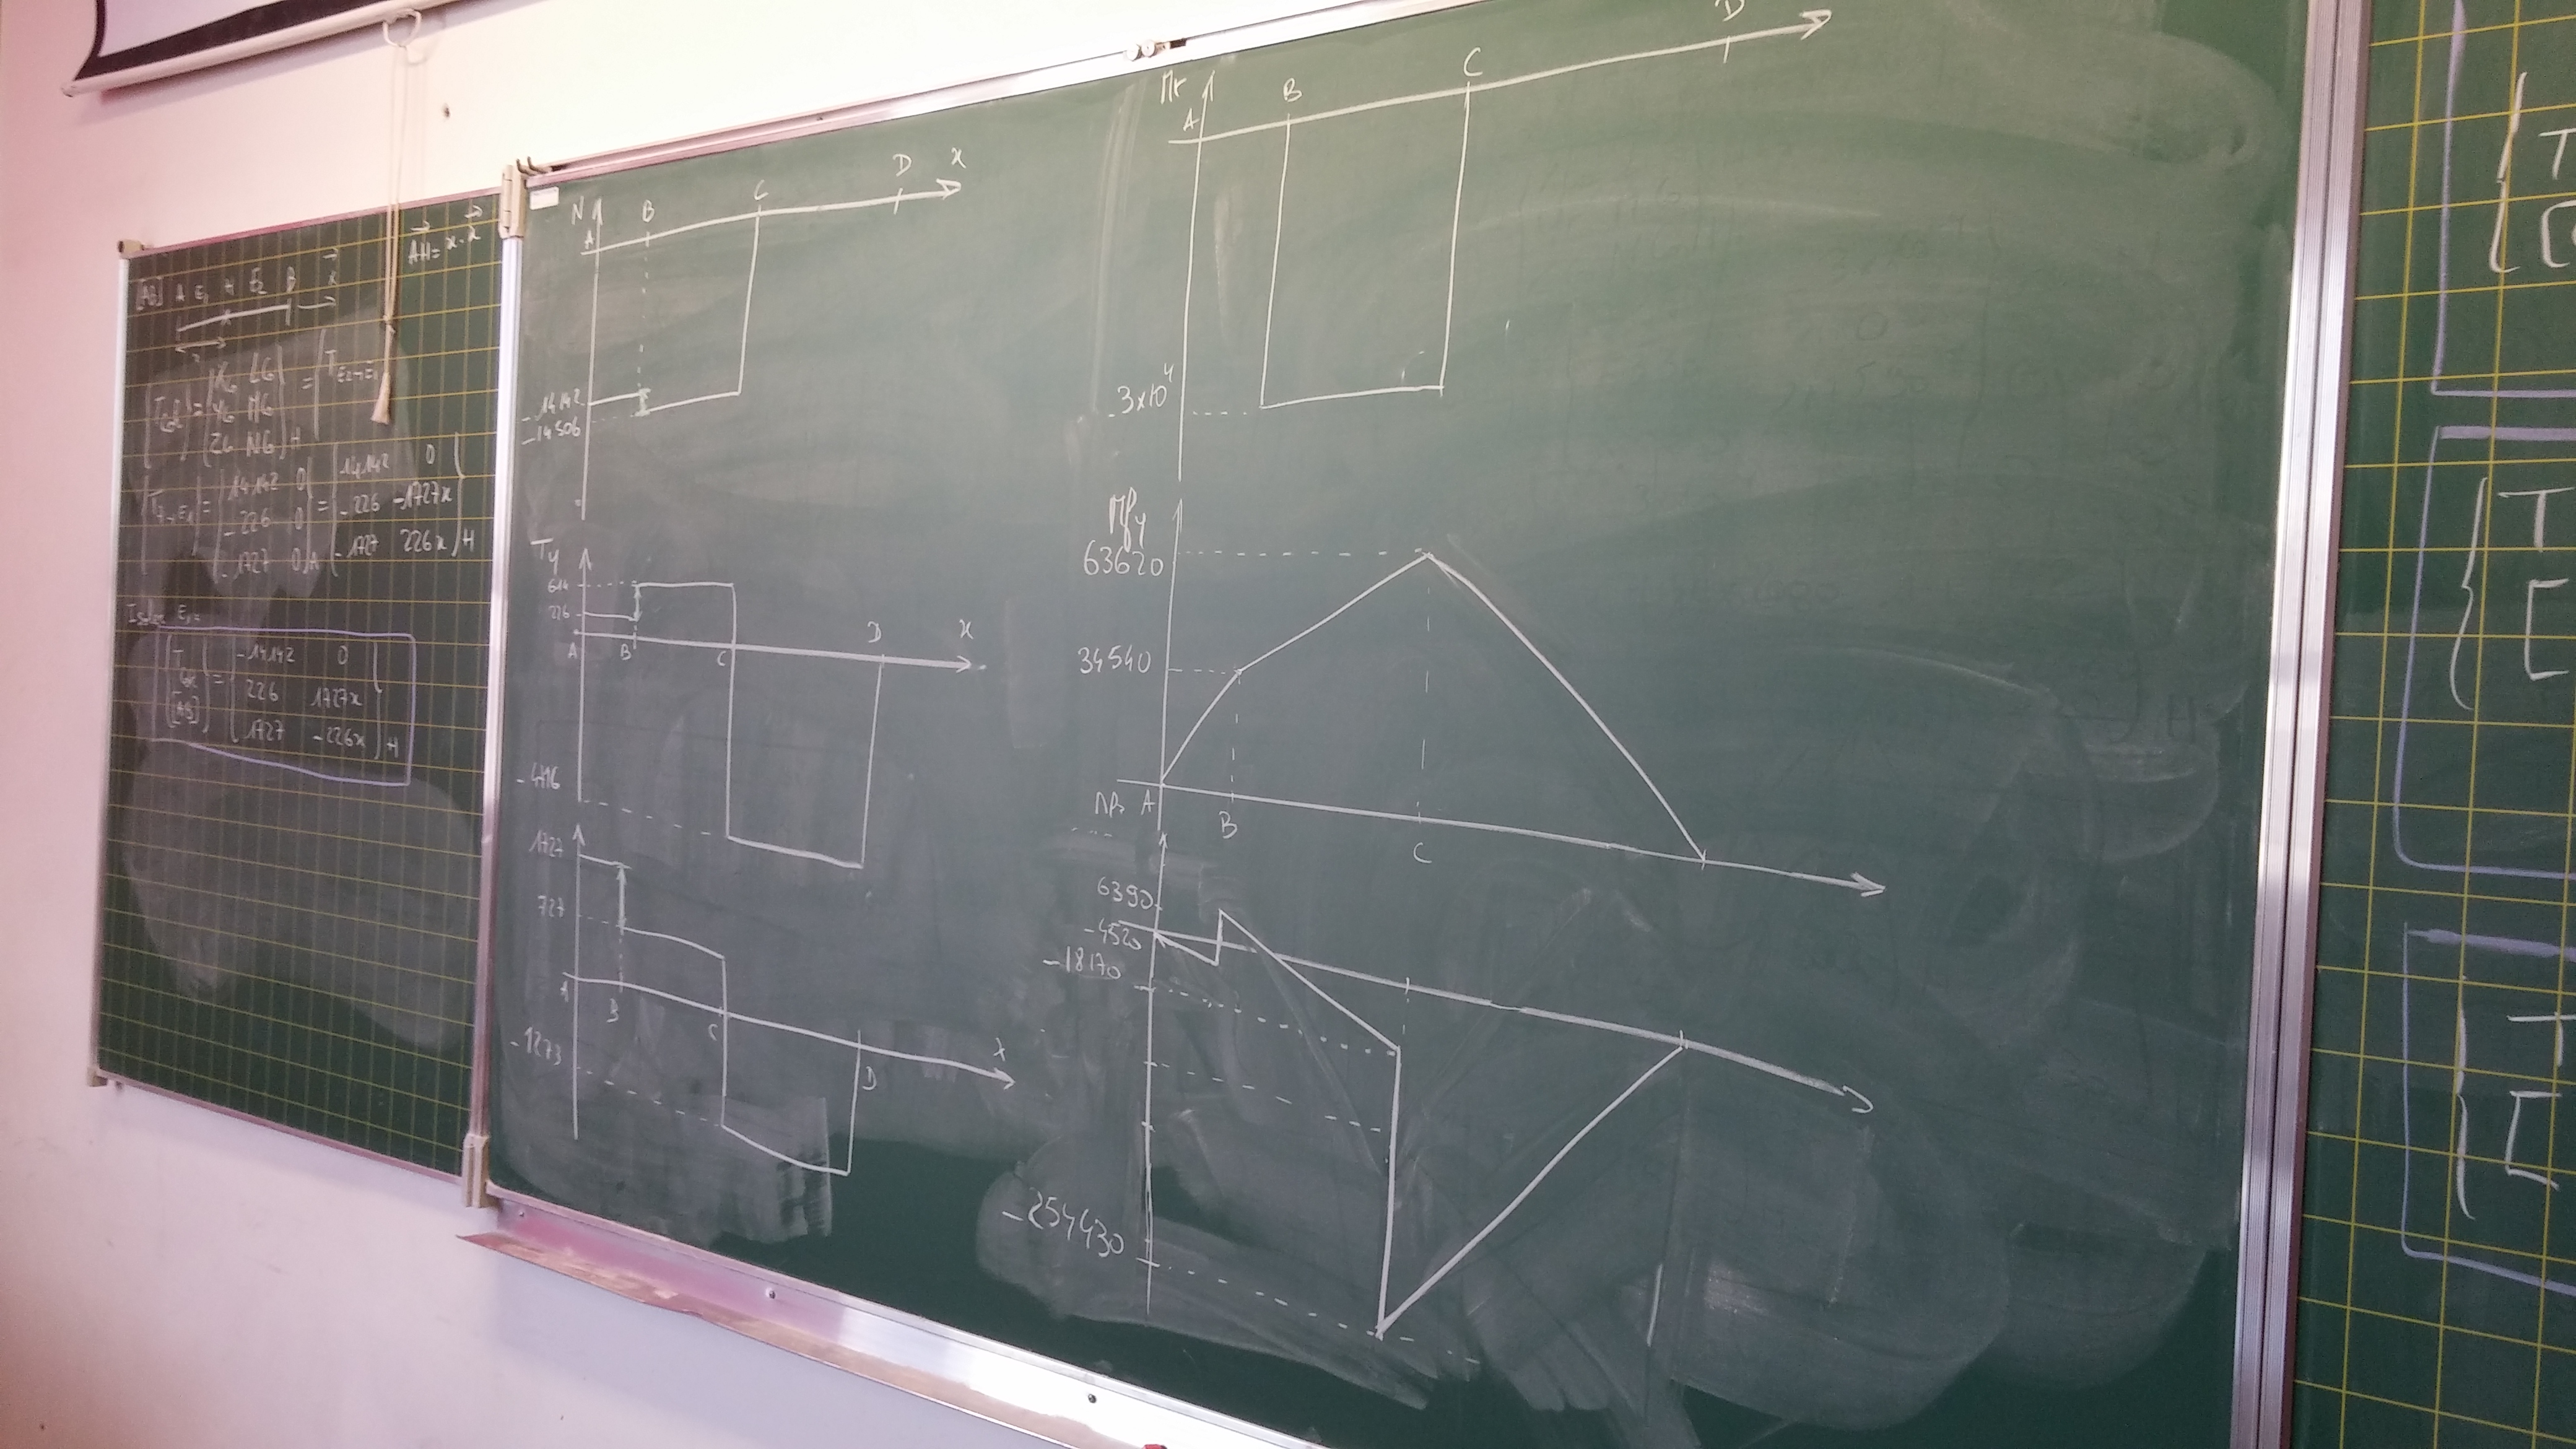 [AB] A E₁ H E₂ B x⃗
AH⃗ = x·x⃗
x
{T_coh} = {X_G L_G
Y_G M_G
Z_G N_G}_H = {T_E2→E1}
{T_3→E1} = {14142 0
-226 0
-1727 0}_A = {14142 0
-226 -1727x
-1727 226x}_H
Isoler E₁ =
{T_coh [AB]} = {-14142 0
226 1727x
1727 -226x}_H
N A B C D x
-14142
-14506
Ty
614
226
A B C D x
-4116
1727
727
A B C D x
-1273
Mt
A B C D
-3x10⁴
Mfy
63620
34540
A B C
Mfz
6390
-4520
-18170
-254430
{T
[
{T
[
{T
[